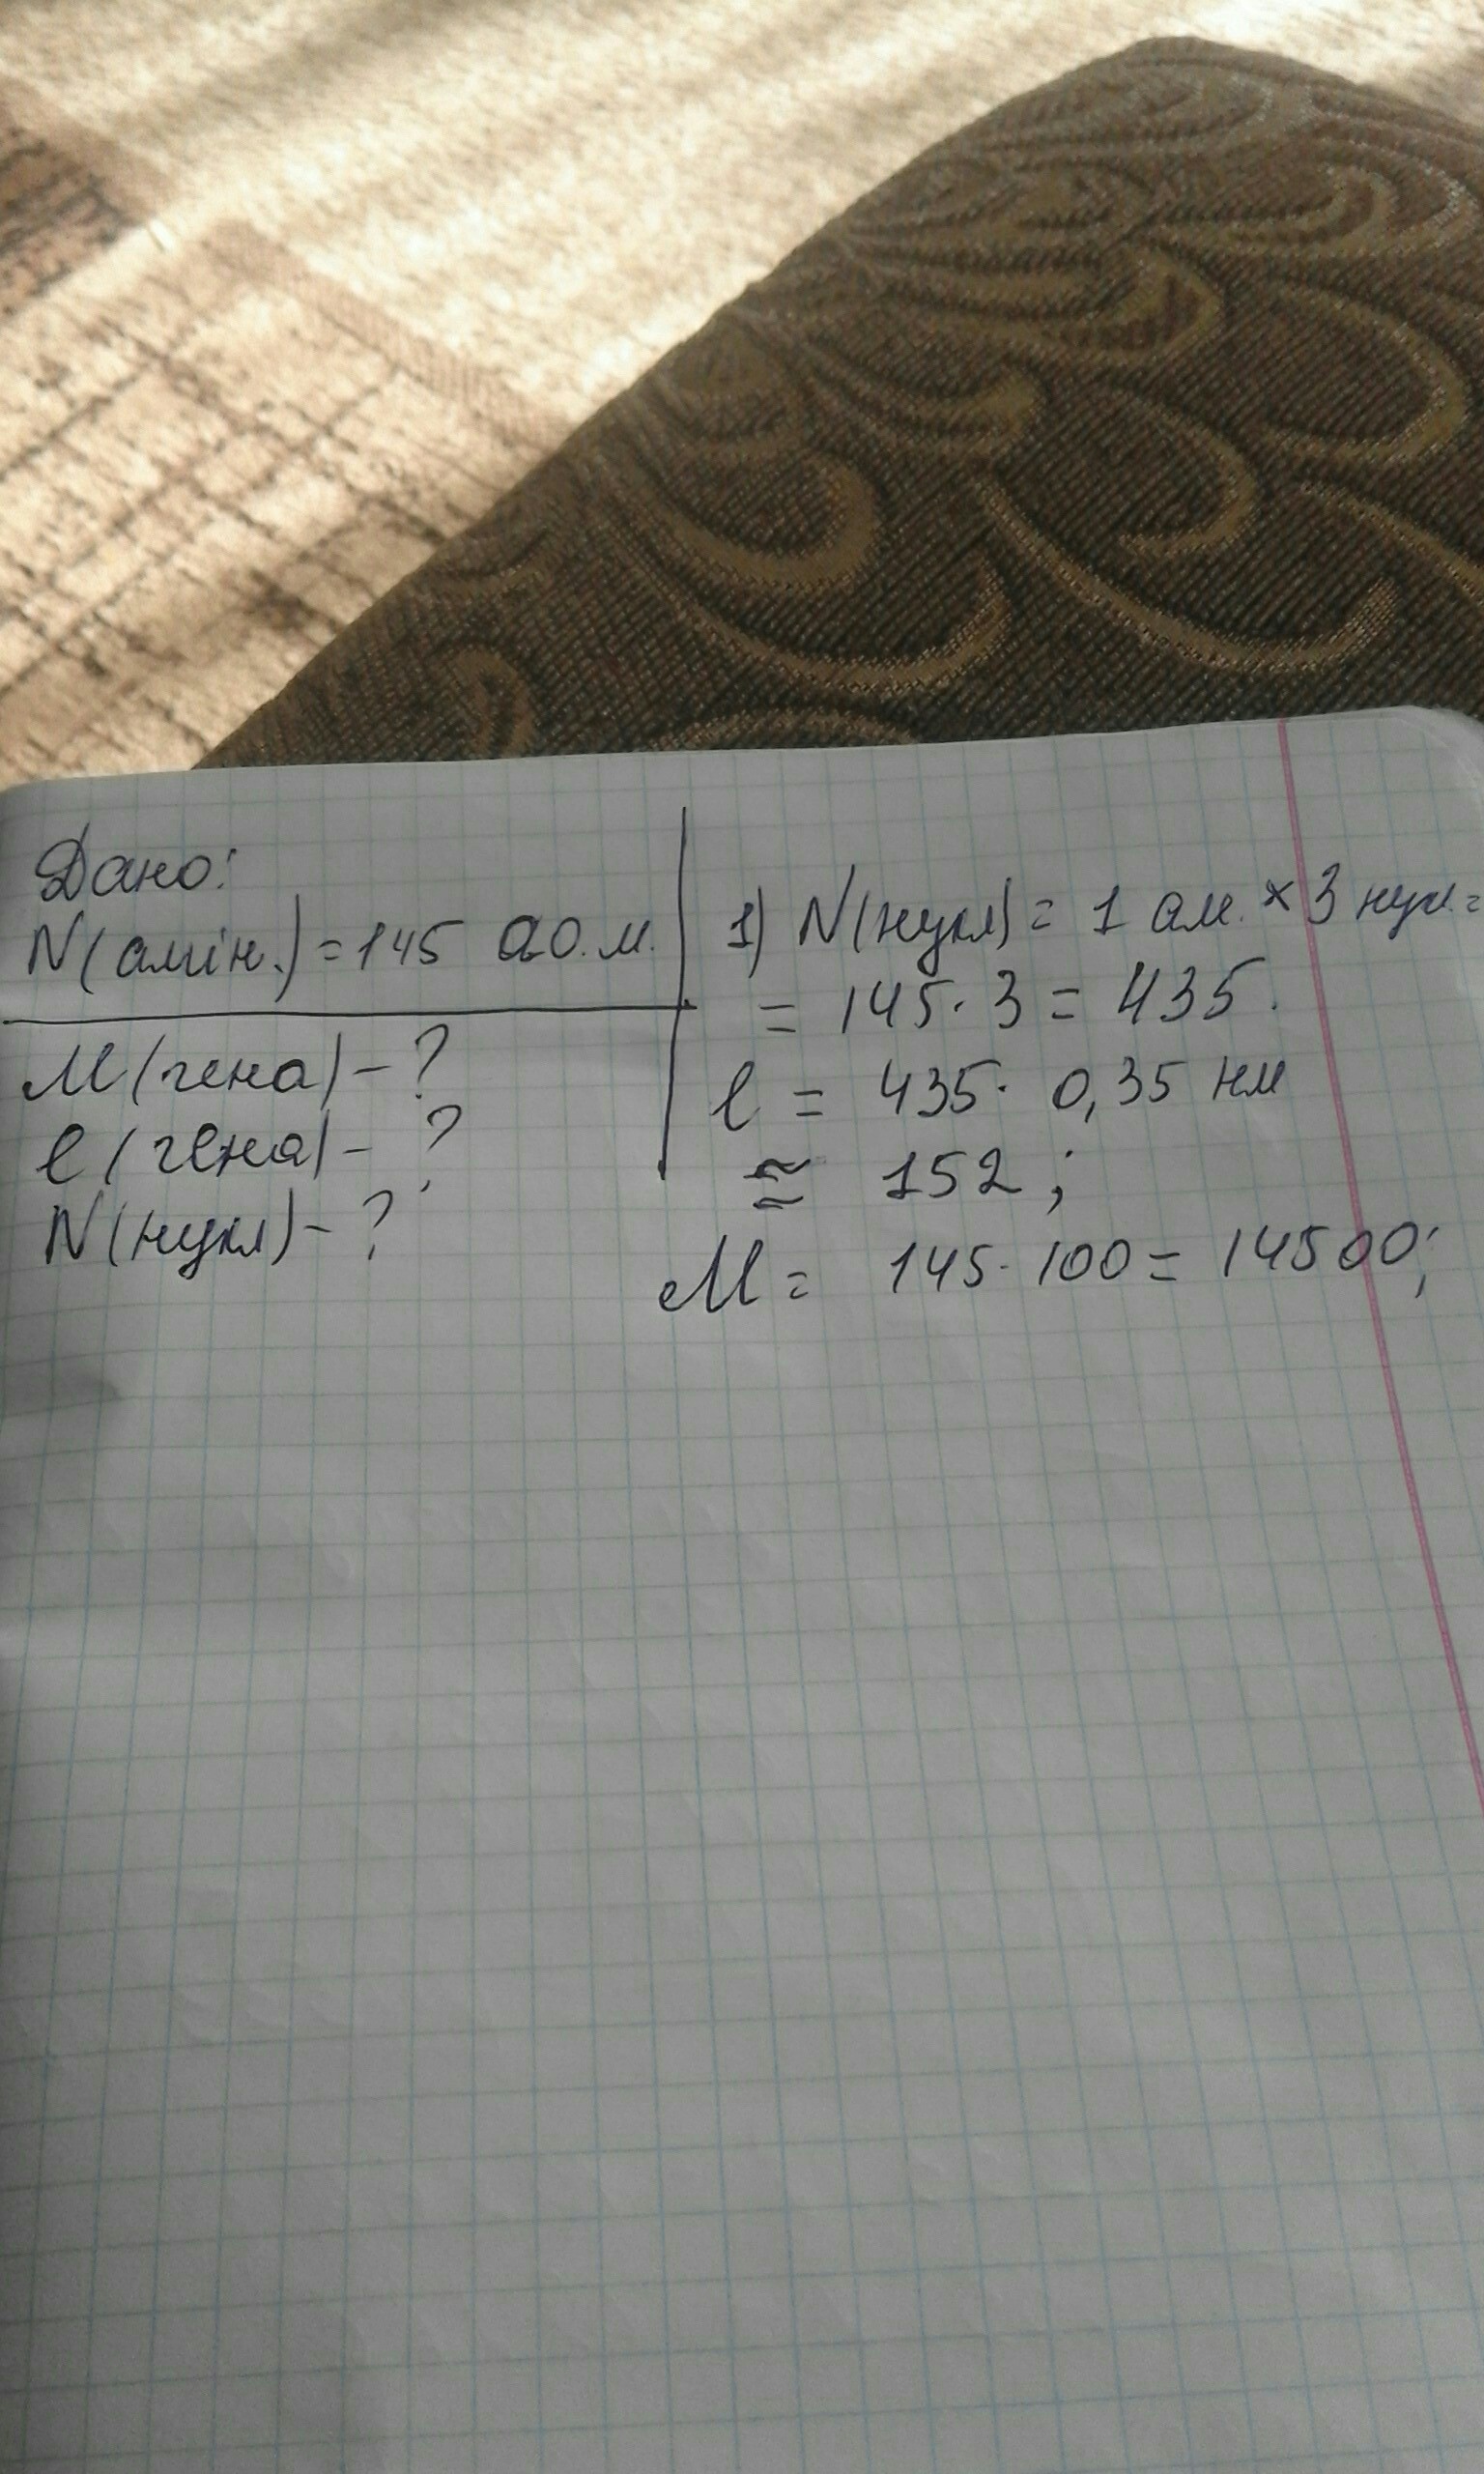 Дано:
N(амін.)=145 а.о.м.
M(гена)-?
l(гена)-?
N(нукл)-?
1) N(нукл)= 1 ам. × 3 нукл.=
= 145·3= 435.
l = 435· 0,35 нм
≅ 152;
M= 145·100= 14500;